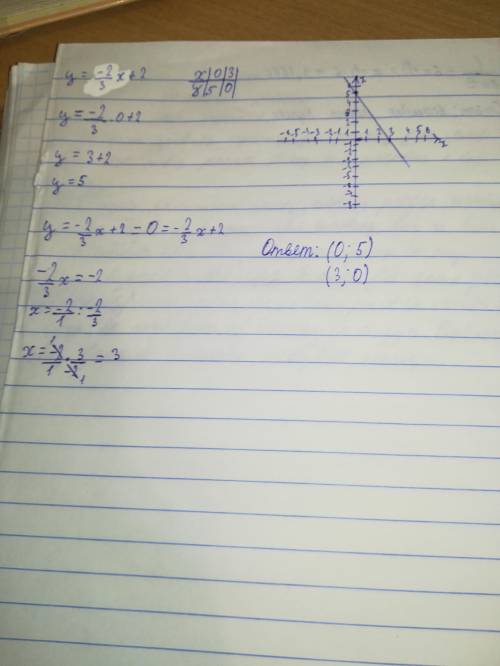 y = -2/3 x + 2
x | 0 | 3
y | 5 | 0
y = -2/3 · 0 + 2
y = 3 + 2
y = 5
y = -2/3 x + 2 - 0 = -2/3 x + 2
-2/3 x = -2
x = -2/1 : -2/3
x = -2/1 · 3/-2 = 3
Ответ: (0; 5)
(3; 0)